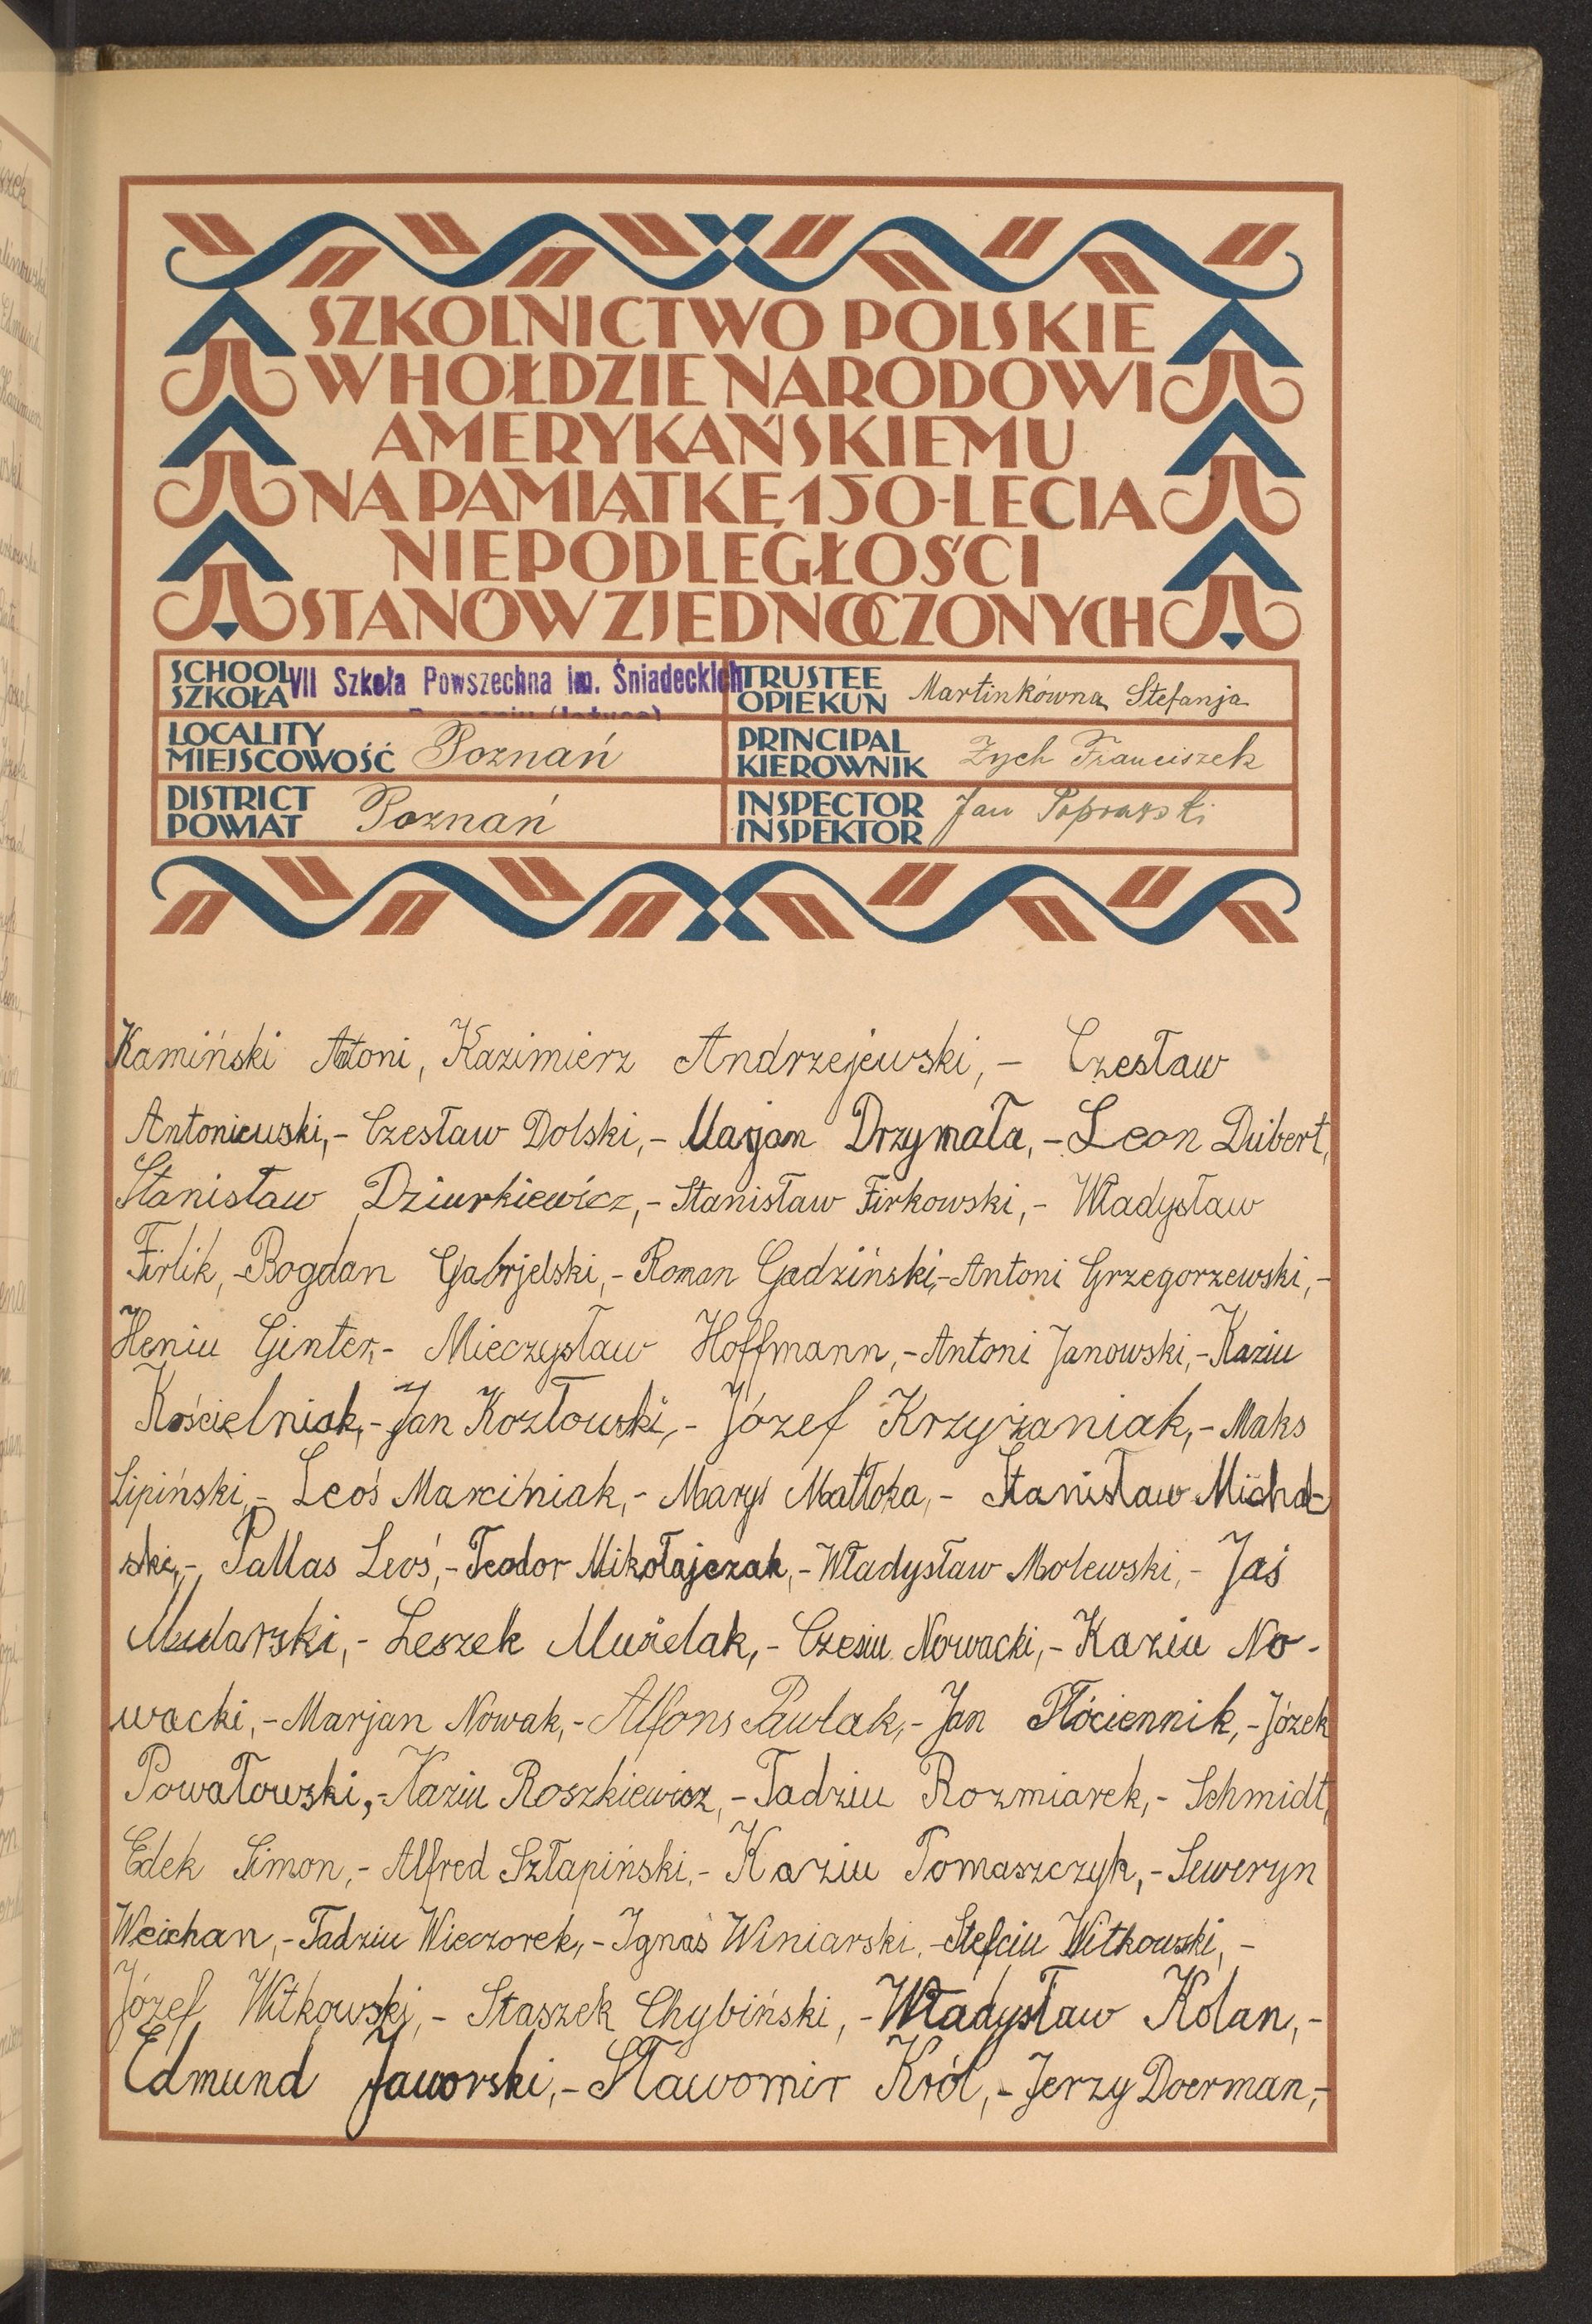 SZKOLNICTWO POLSKIE
W HOŁDZIE NARODOWI
AMERYKAŃSKIEMU
NA PAMIĄTKĘ 150-LECIA
NIEPODLEGŁOŚCI
STANÓW ZJEDNOCZONYCH
SCHOOL
SZKOŁA
VII Szkoła Powszechna im. Śniadeckich
TRUSTEE
OPIEKUN
Martinkówna Stefanja
LOCALITY
MIEJSCOWOŚĆ
Poznań
PRINCIPAL
KIEROWNIK
Zych Franciszek
DISTRICT
POWIAT
Poznań
INSPECTOR
INSPEKTOR
Jan
Kamiński Antoni, Kazimierz Andrzejewski,- Czesław
Antoniewski,- Czesław Dolski,- Marjan Drzymała,- Leon Dubert,
Stanisław Dziurkiewicz,- Stanisław Firkowski,- Władysław
Firlik,- Bogdan Gabrjelski,- Roman Gadziński,- Antoni Grzegorzewski,-
Heniu Ginter,- Mieczysław Hoffmann,- Antoni Janowski,- Kaziu
Kościelniak,- Jan Kozłowski,- Józef Krzyżaniak,- Maks
Lipiński,- Leoś Marciniak,- Maryś Matłoka,- Stanisław Michal-
ski,- Pallas Leoś,- Teodor Mikołajczak,- Władysław Molewski,- Jaś
Mudarski,- Leszek Musielak,- Czesiu Nowacki,- Kaziu No-
wacki,- Marjan Nowak,- Alfons Pawlak,- Jan Płóciennik,- Józek
Powałowski,- Kaziu Roszkiewicz,- Tadziu Rozmiarek,- Schmidt,
Edek Simon,- Alfred Szłapiński,- Kaziu Tomaszczyk,- Seweryn
Weichan,- Tadziu Wieczorek,- Ignaś Winiarski,- Stefciu Witkowski,-
Józef Witkowski,- Staszek Chybiński,- Władysław Kolan,-
Edmund Jaworski,- Sławomir Król,- Jerzy Doerman,-